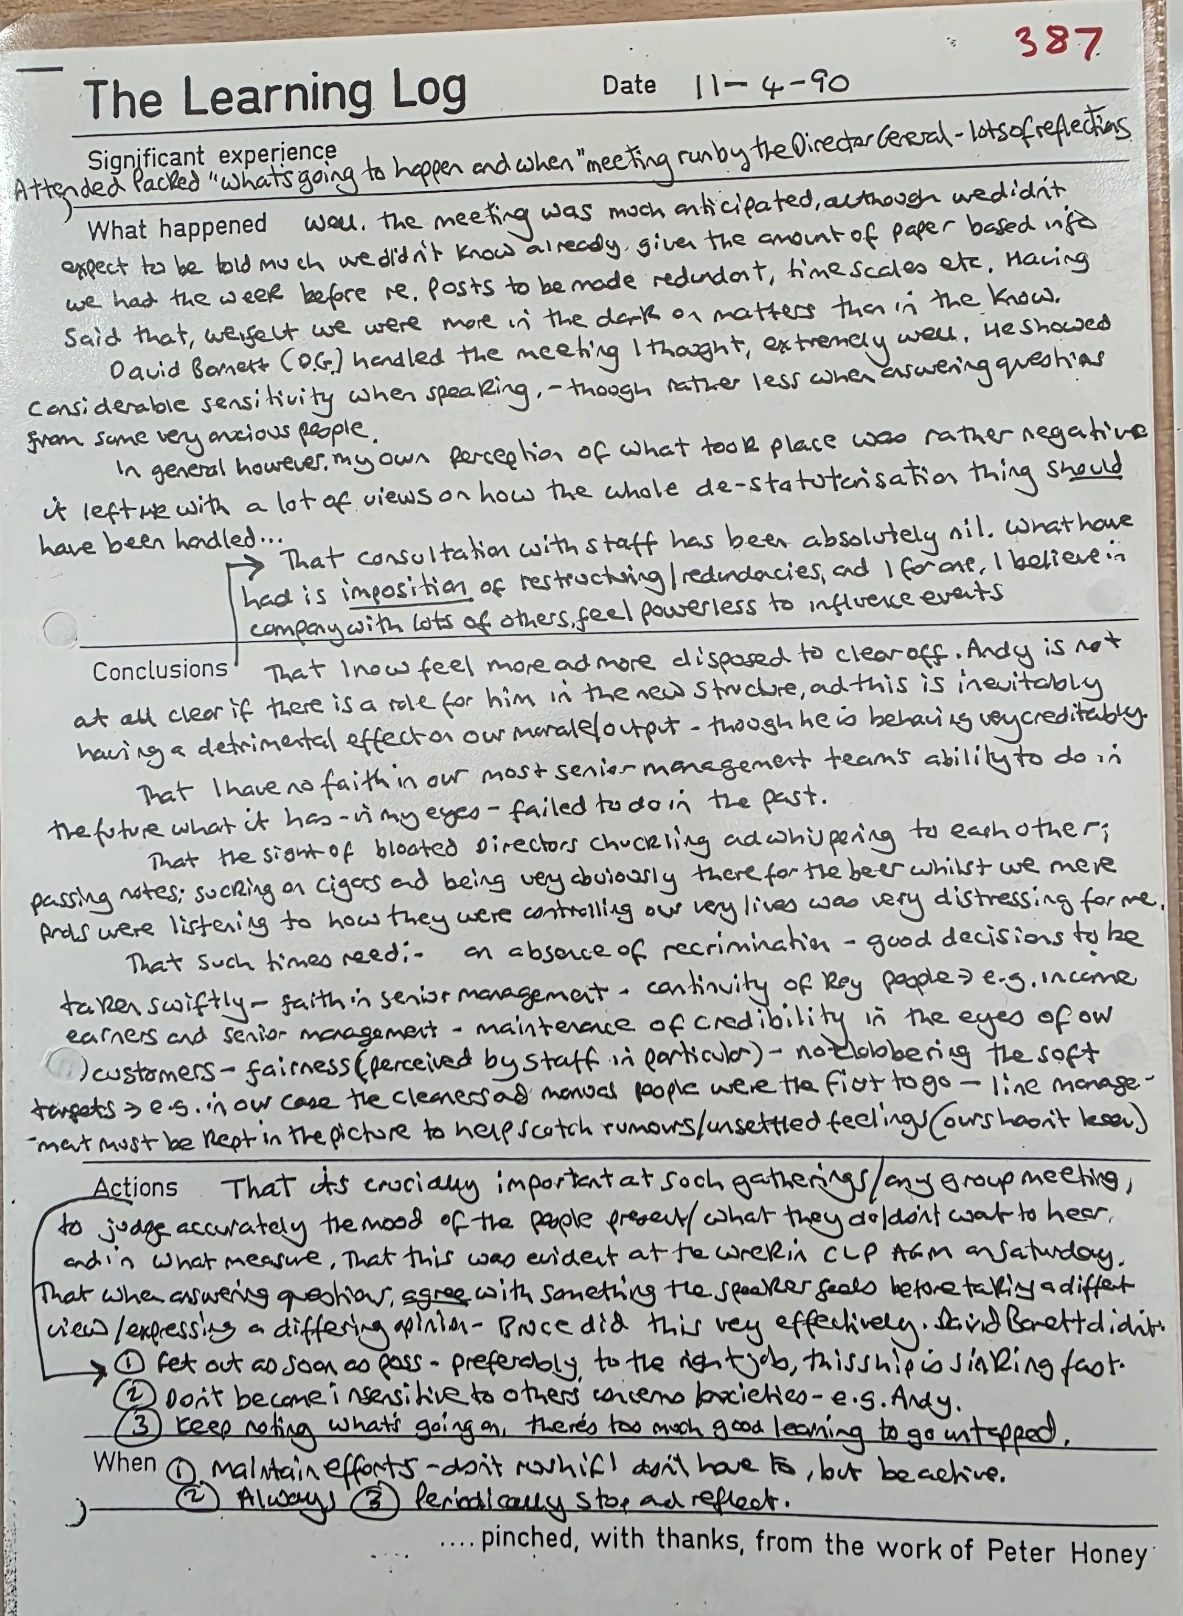 387
The Learning Log Date 11-4-90
Significant experience
Attended Packed "what's going to happen and when" meeting run by the Director General - lots of reflections
What happened Well, the meeting was much anticipated, although we didn't
expect to be told much we didn't know already, given the amount of paper based info
we had the week before re. posts to be made redundant, timescales etc. Having
said that, we felt we were more in the dark on matters than in the know.
David Barnett (D.G.) handled the meeting I thought, extremely well. He showed
considerable sensitivity when speaking, - though rather less when answering questions
from some very anxious people.
In general however, my own perception of what took place was rather negative
it left me with a lot of views on how the whole de-statutorisation thing should
have been handled...
That consultation with staff has been absolutely nil. What have
had is imposition of restructuring/redundacies, and I for one, I believe in
company with lots of others, feel powerless to influence events
Conclusions That I now feel more and more disposed to clear off. Andy is not
at all clear if there is a role for him in the new structure, and this is inevitably
having a detrimental effect on our morale/output - though he is behaving very creditably.
That I have no faith in our most senior management team's ability to do in
the future what it has - in my eyes - failed to do in the past.
That the sight of bloated Directors chuckling and whispering to each other;
passing notes; sucking on cigars and being very obviously there for the beer whilst we mere
prols were listening to how they were controlling our very lives was very distressing for me.
That such times need:- an absence of recrimination - good decisions to be
taken swiftly - faith in senior management - continuity of key people → e.g. income
earners and senior management - maintenance of credibility in the eyes of our
customers - fairness (perceived by staff in particular) - not clobbering the soft
targets → e.g. in our case the cleaners and manual people were the first to go - line manage-
-ment must be kept in the picture to help scotch rumours/unsettled feelings (ours hasn't been)
Actions That it's crucially important at such gatherings/any group meeting,
to judge accurately the mood of the people present/what they do/don't want to hear,
and in what measure. That this was evident at the Wrekin CLP AGM on Saturday.
That when answering questions, agree with something the speaker feels before taking a differt
view/expressing a differing opinion - Bruce did this very effectively. David Barnett didn't.
① Get out as soon as poss - preferably, to the right job, this ship is sinking fast.
② Don't become insensitive to others concerns/anxieties - e.g. Andy.
③ Keep noting what's going on, there's too much good learning to go untapped.
When ① Maintain efforts - don't rush if I don't have to, but be active.
② Always ③ Periodically stop and reflect.
.... pinched, with thanks, from the work of Peter Honey